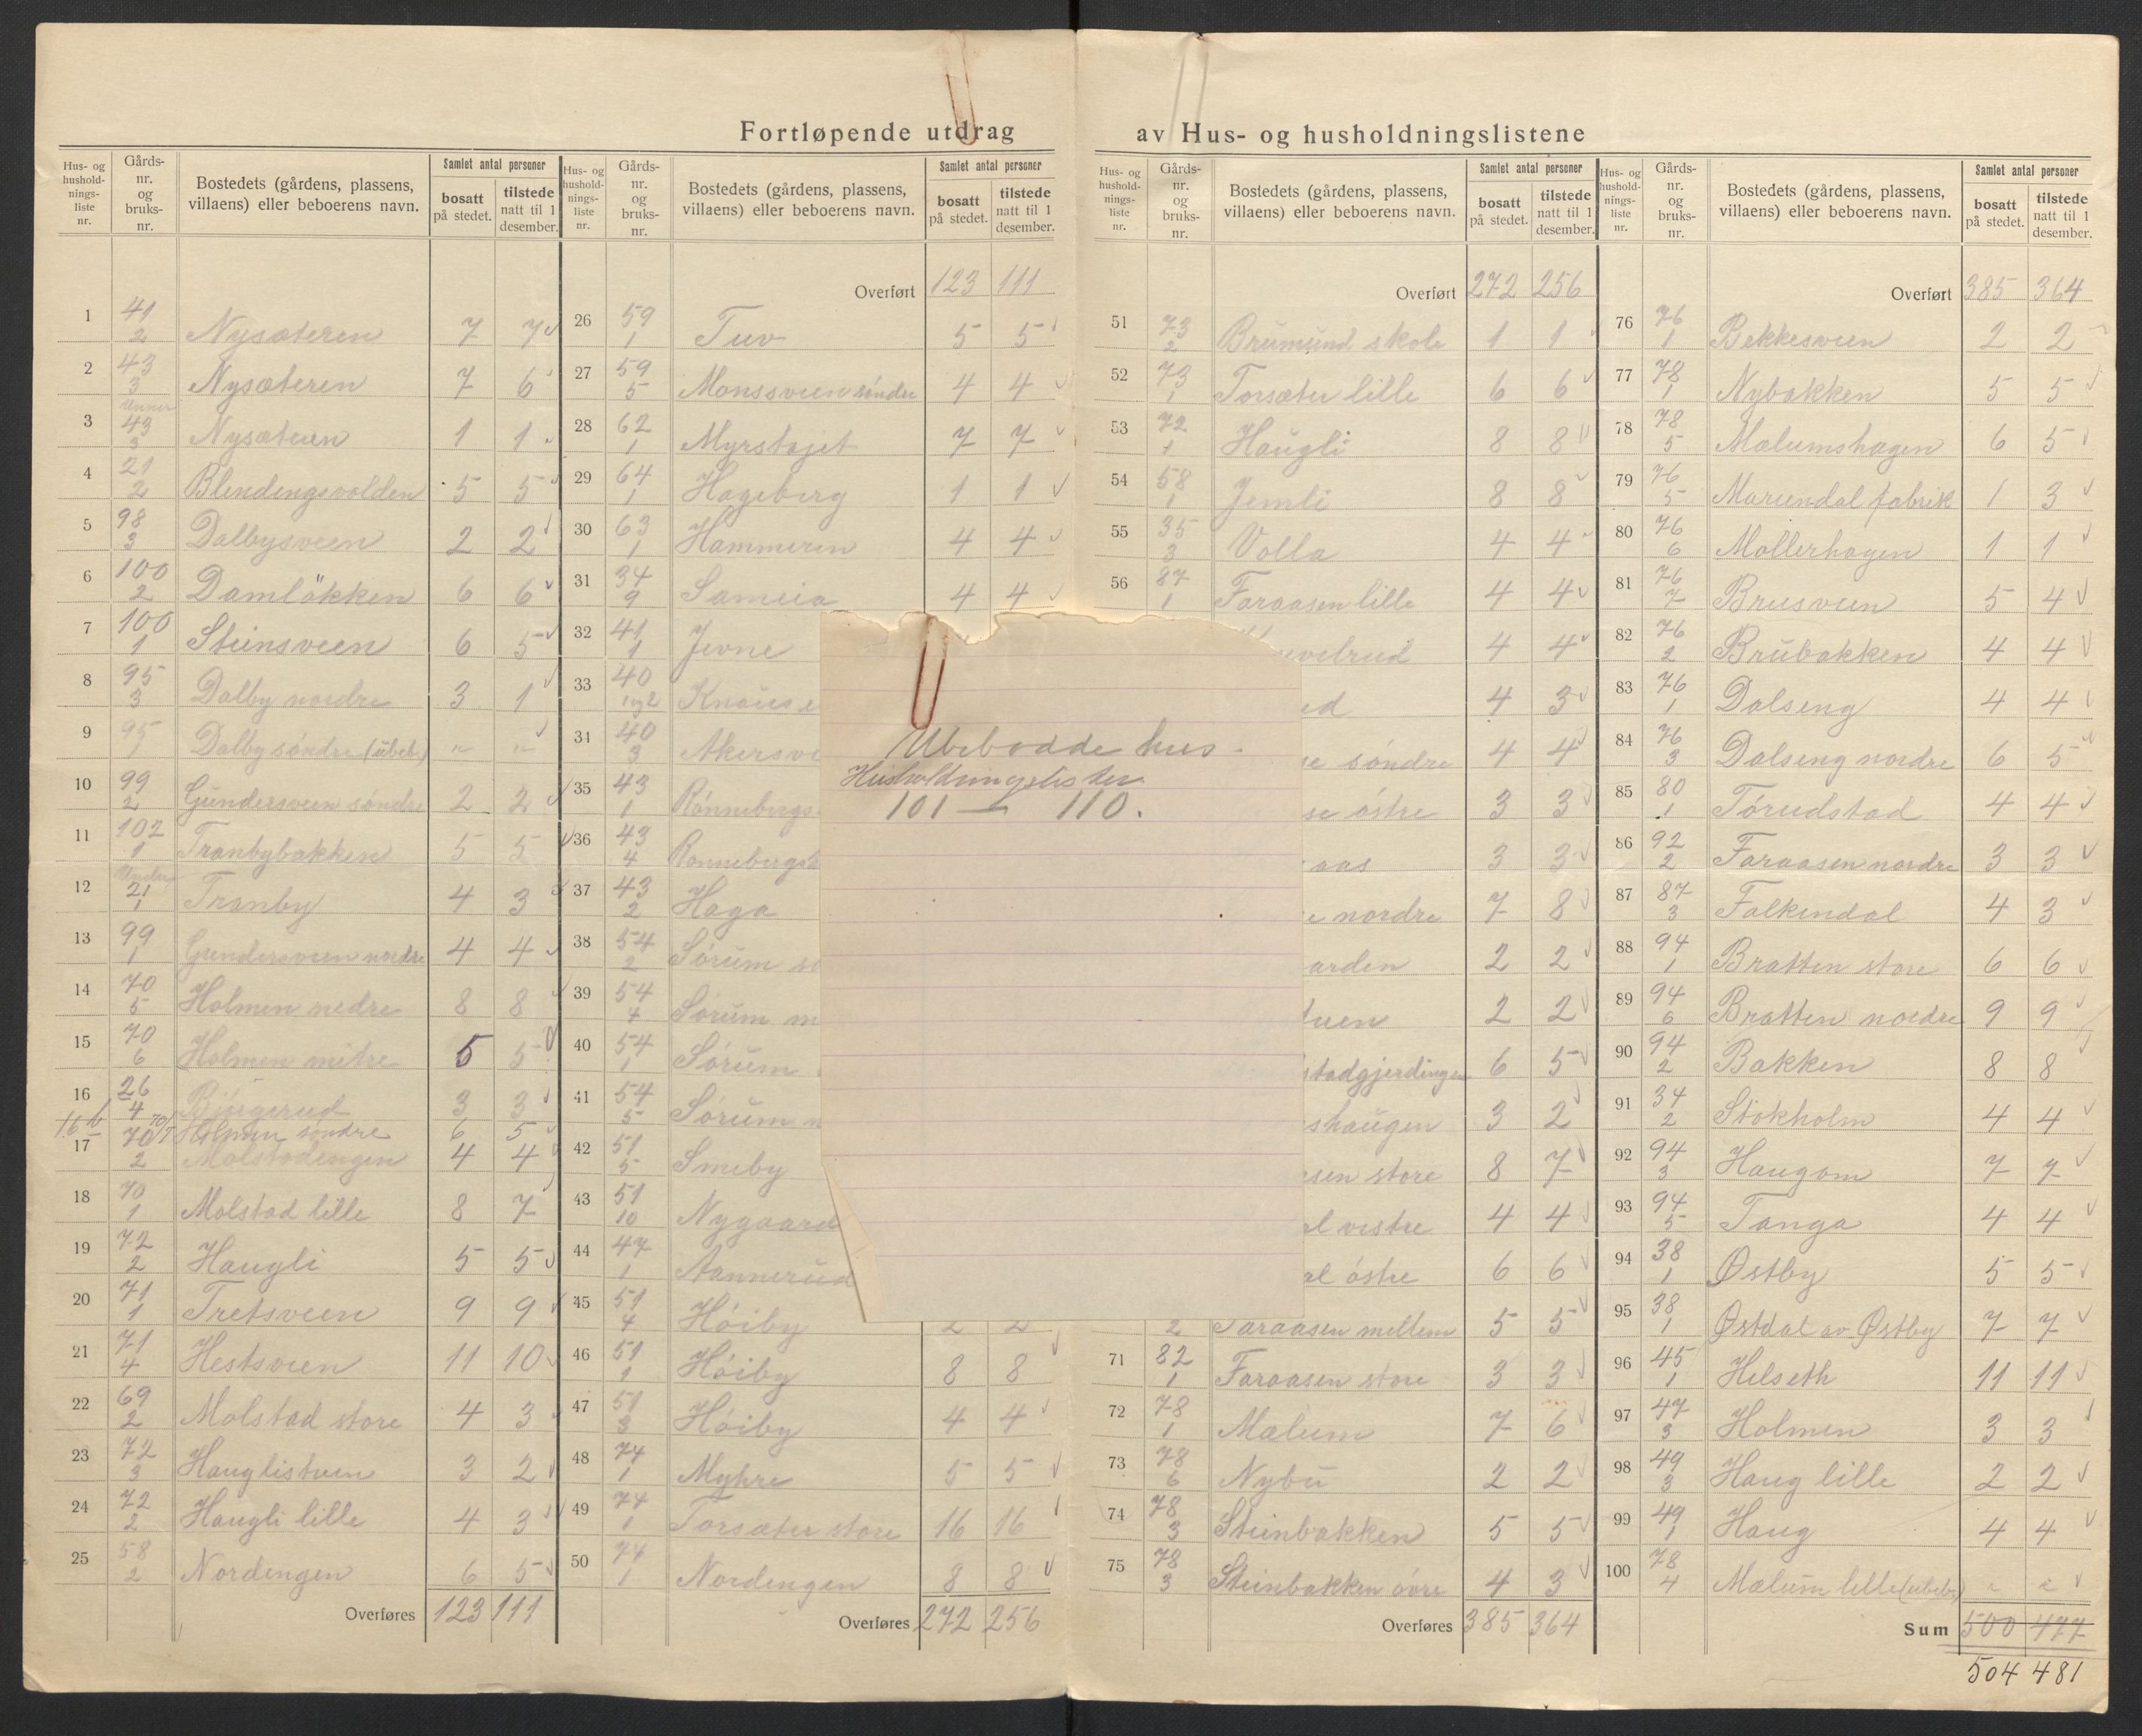 Fortløpende utdrag av Hus- og husholdningslistene
Hus- og husholdningsliste nr. | Gårds-nr. og bruks-nr. | Bostedets (gårdens, plassens, villaens) eller beboerens navn. | Samlet antal personer | bosatt på stedet. | tilstede natt til 1 desember.
1 41/2 Nysæteren 7 7
2 43/3 Nysæteren 7 6
3 Under 43/3 Nysæteren 1 1
4 21/2 Blendengsvolden 5 5
5 98/3 Dalbysveen 2 2
6 100/2 Damlökken 6 6
7 100/1 Steinsveen 6 5
8 95/3 Dalby nordre 3 1
9 95/1 Dalby søndre (ubeb.) " "
10 99/2 Gundersveen søndre 2 2
11 102/1 Tranbybakken 5 5
12 Under 21/1 Tranby 4 3
13 99/1 Gundersveen nordre 4 4
14 70/5 Holmen nedre 8 8
15 70/6 Holmen mitre 5 5
16 26/4 Bjørgerud 3 3
16 b 70/7 Holmen søndre 6 5
17 70/2 Molstadengen 4 4
18 70/1 Molstad lille 8 7
19 72/2 Haugli 5 5
20 71/1 Tretsveen 9 9
21 71/4 Hestsveen 11 10
22 69/2 Molstad store 4 3
23 72/3 Hauglistuen 3 2
24 72/2 Haugli lille 4 3
25 58/2 Nordengen 6 5
Overføres 123 111
Hus- og husholdningsliste nr. | Gårds-nr. og bruks-nr. | Bostedets (gårdens, plassens, villaens) eller beboerens navn. | Samlet antal personer | bosatt på stedet. | tilstede natt til 1 desember.
Overført 123 111
26 59/1 Tuv 5 5
27 59/5 Monssveen søndre 4 4
28 62/1 Myrstajet 7 7
29 64/1 Hageberg 1 1
30 63/1 Hammeren 4 4
31 34/9 Sameia 4 4
32 41/1 Jevne
33 40/1 og 2 Knause
31 40/3 Akersve
35 43/1 Rønnebergs
36 43/4 Rønnebergsb
37 43/2 Haga
38 54/2 Sørum sø
39 54/4 Sørum m
40 54/1 Sørum
41 54/5 Sørum n
42 51/5 Smeby
43 51/10 Nygaard
44 47/1 Aannerud
45 51/4 Høiby 2 2
46 51/1 Høiby 8 8
47 51/3 Høiby 4 4
48 74/1 Myhre 5 5
49 74/1 Torsæter store 16 16
50 74/1 Nordengen 8 8
Overføres 272 256
Ubebodde hus.
Husholdningslister
101 — 110.
Hus- og husholdningsliste nr. | Gårds-nr. og bruks-nr. | Bostedets (gårdens, plassens, villaens) eller beboerens navn. | Samlet antal personer | bosatt på stedet. | tilstede natt til 1 desember.
Overført 272 256
51 73/2 Brumund skole 1 1
52 73/1 Torsæter lille 6 6
53 72/1 Haugli 8 8
54 58/1 Jemli 8 8
55 35/3 Volla 4 4
56 87/1 Faraasen lille 4 4
evelrud 4 4
ed 4 3
se søndre 4 4
se østre 3 3
aas 3 3
e nordre 7 8
arden 2 2
tuen 2 2
stadgjerdingen 6 5
shaugen 3 2
sen store 8 7
al vestre 4 4
al østre 6 6
2 Faraasen mellem 5 5
71 82/1 Faraasen store 3 3
72 78/1 Mælum 7 6
73 78/6 Nybu 2 2
74 78/3 Steinbakken 5 5
75 78/3 Steinbakken øvre 4 3
Overføres 385 364
Hus- og husholdningsliste nr. | Gårds-nr. og bruks-nr. | Bostedets (gårdens, plassens, villaens) eller beboerens navn. | Samlet antal personer | bosatt på stedet. | tilstede natt til 1 desember.
Overført 385 364
76 76/1 Bekkesveen 2 2
77 78/1 Nybakken 5 5
78 78/5 Mælumshagen 6 5
79 76/5 Mariendal fabrik 1 3
80 76/6 Møllerhagen 1 1
81 76/7 Brusveen 5 4
82 76/2 Brubakken 4 4
83 76/1 Dalseng 4 4
84 76/3 Dalseng nordre 6 5
85 80/1 Tørudstad 4 4
86 92/2 Faraasen nordre 3 3
87 87/3 Falkendal 4 3
88 94/1 Bratten store 6 6
89 94/6 Bratten nordre 9 9
90 94/2 Bakken 8 8
91 34/2 Stokholm 4 4
92 94/3 Haugom 7 7
93 94/5 Tanga 4 4
94 38/1 Østby 5 5
95 38/1 Østdal av Østby 7 7
96 45/1 Helseth 11 11
97 47/3 Holmen 3 3
98 49/3 Haug lille 2 2
99 49/1 Haug 4 4
100 78/4 Mælum lille (ubeb.) " "
Sum 500 477
504 481